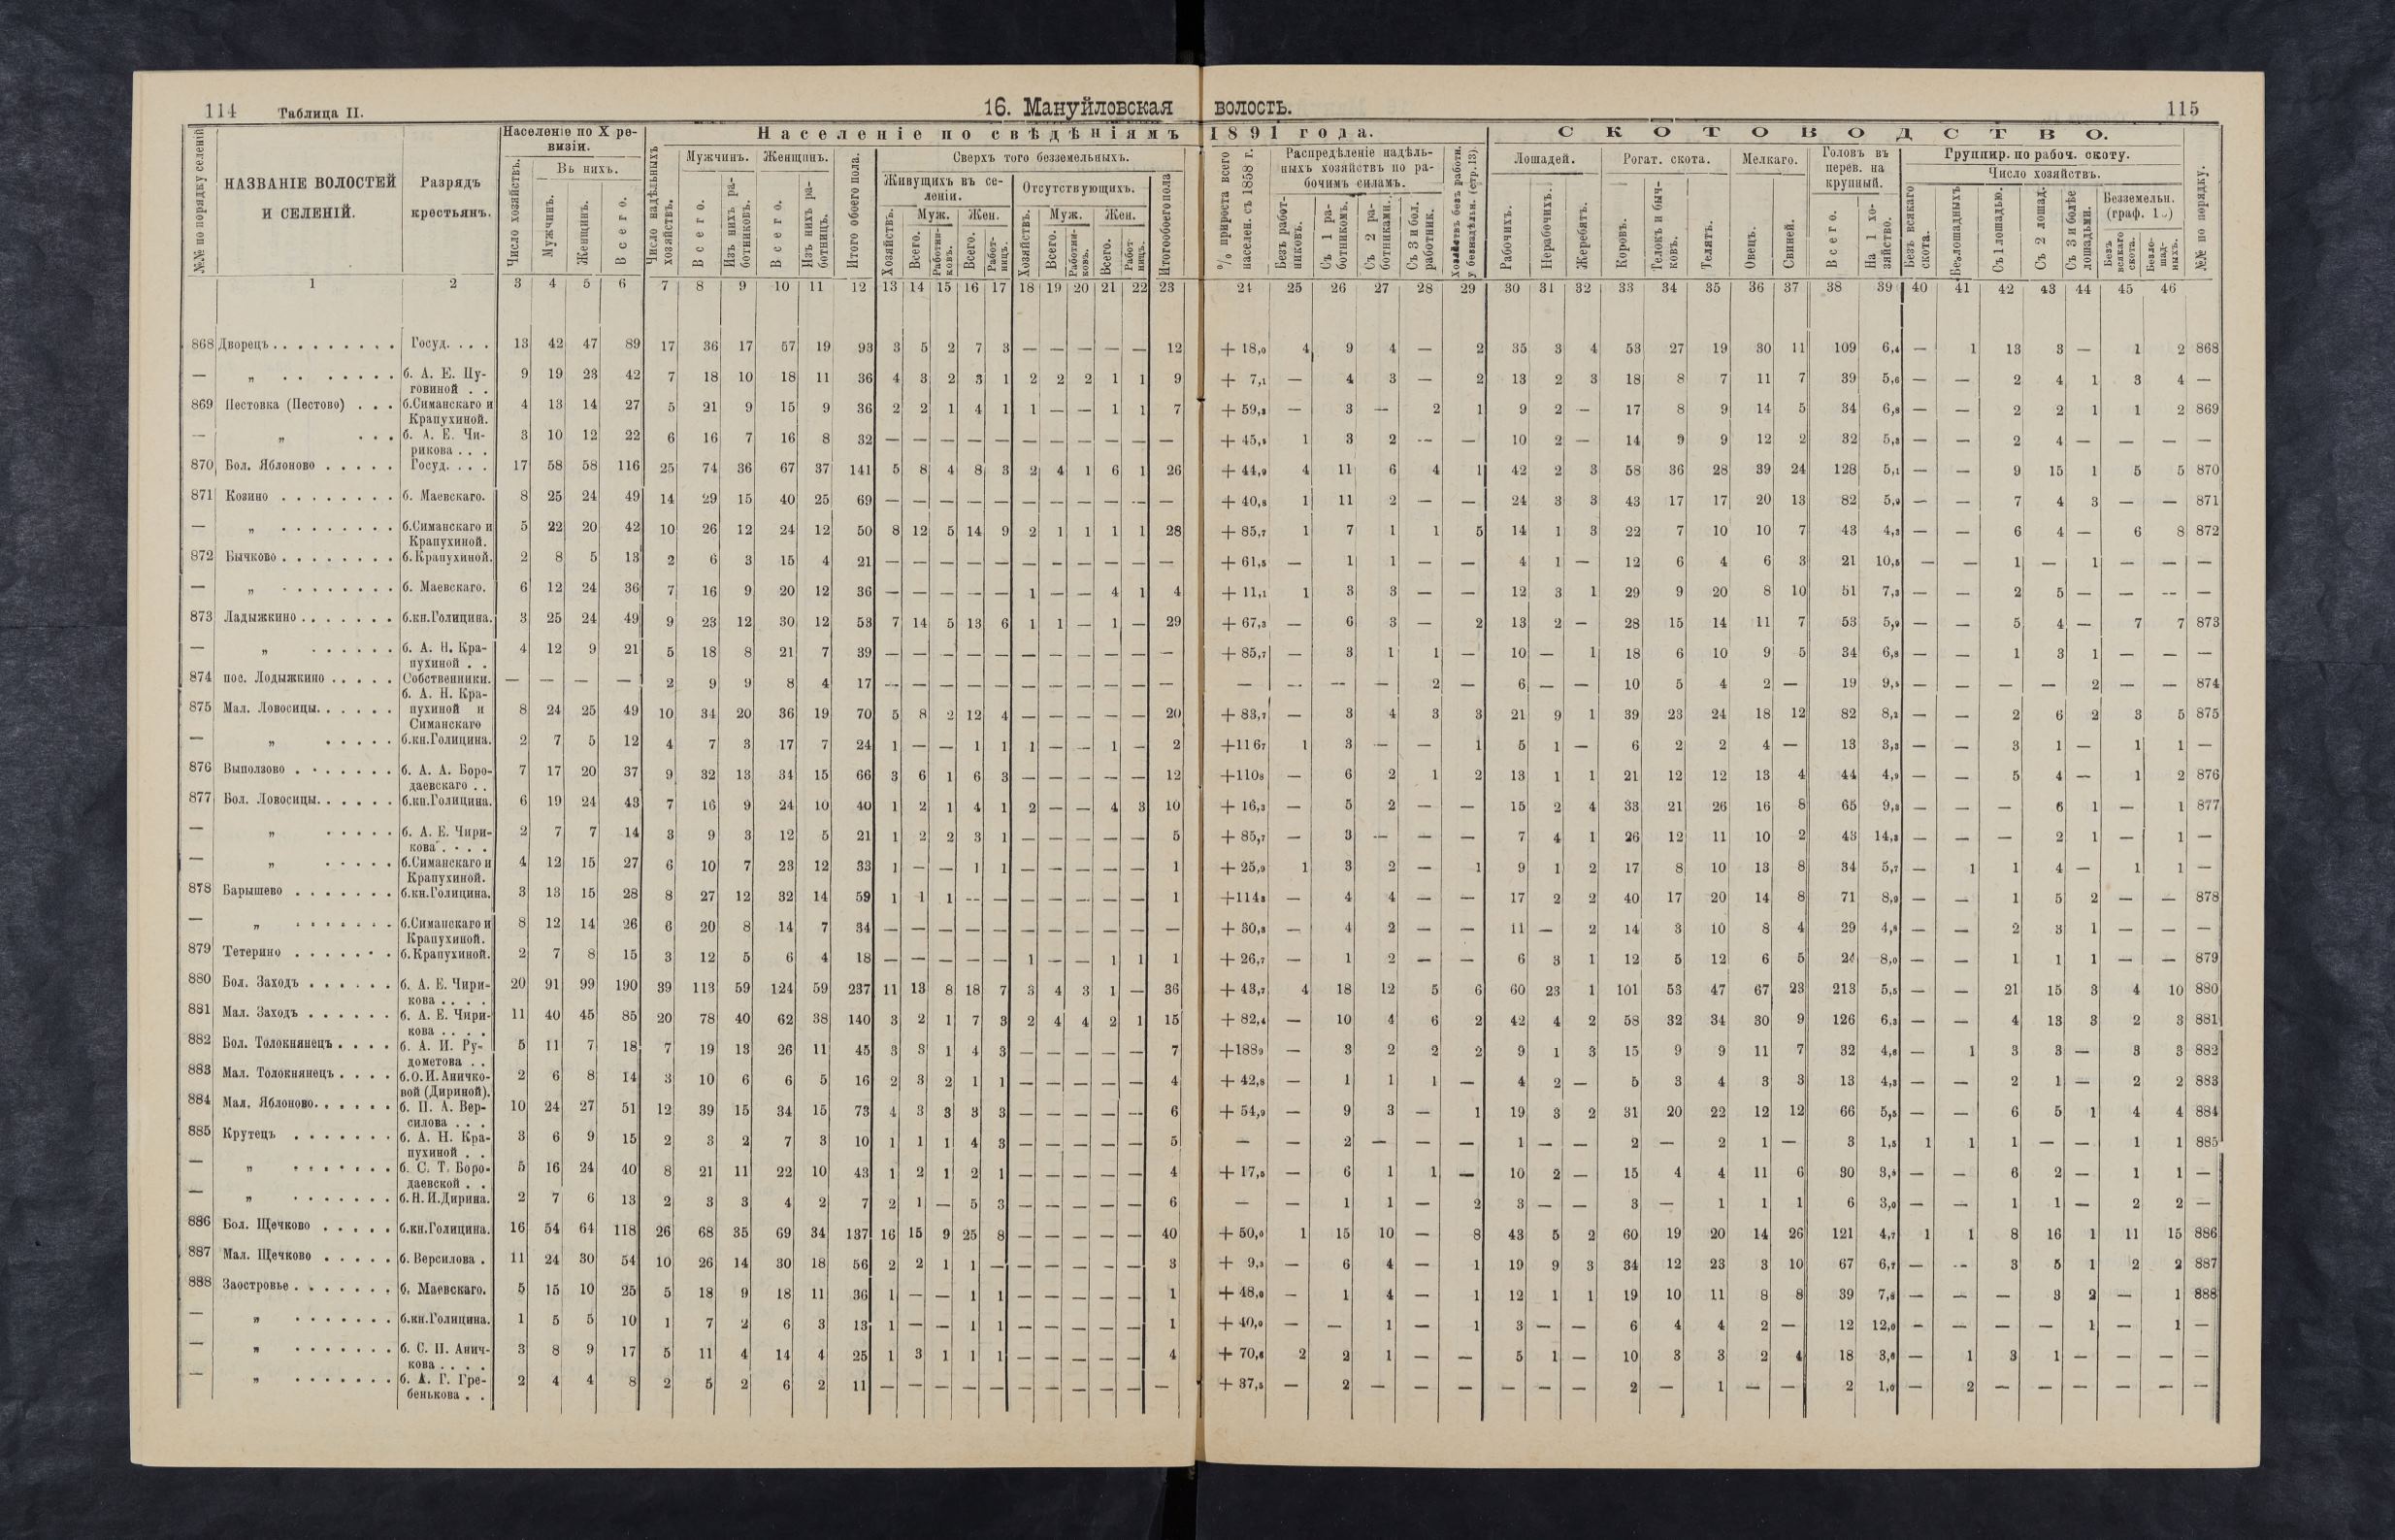 114 Таблица II. 16. Мануйловская волость. 115
№№ по порядку селеній
НАЗВАНІЕ ВОЛОСТЕЙ И СЕЛЕНІЙ.
Разрядъ крестьянъ.
Населеніе по X ревизіи.
Число хозяйствъ.
Въ нихъ.
Мужчинъ. Женщинъ. Всего.
Населеніе по свѣдѣніямъ 1891 года.
Число надѣльныхъ хозяйствъ.
Мужчинъ. Женщинъ.
Всего. Изъ нихъ работниковъ. Всего. Изъ нихъ работницъ.
Итого обоего пола.
Сверхъ того безземельныхъ.
Живущихъ въ селеніи. Отсутствующихъ.
Хозяйствъ. Муж. Жен. Хозяйствъ. Муж. Жен.
Всего. Работниковъ. Всего. Работницъ. Всего. Работниковъ. Всего. Работницъ.
Итого обоего пола
% прироста всего населен. съ 1858 г.
Распредѣленіе надѣльныхъ хозяйствъ по рабочимъ силамъ.
Безъ работниковъ. Съ 1 работникомъ. Съ 2 работниками. Съ 3 и бол. работник.
СКОТОВОДСТВО.
Лошадей. Рогат. скота. Мелкаго. Головъ въ перев. на крупный.
Рабочихъ. Нерабочихъ. Жеребятъ. Коровъ. Телокъ и бычковъ. Телятъ. Овецъ. Свиней. Всего. На 1 хозяйство.
Группир. по рабоч. скоту.
Число хозяйствъ.
Безъ всякаго скота. Безлошадныхъ Съ 1 лошадью. Съ 2 лошад. Съ 3 и болѣе лошадьми.
Безземельн.
Безъ всякаго скота. Безлошадныхъ.
№№ по порядку.
1 2 3 4 5 6 7 8 9 10 11 12 13 14 15 16 17 18 19 20 21 22 23 24 25 26 27 28 29 30 31 32 33 34 35 36 37 38 39 40 41 42 43 44 45 46
868 Дворецъ Госуд. 13 42 47 89 17 36 17 57 19 93 3 5 2 7 3 — — — — — 12 + 18,0 4 9 4 — 2 35 3 4 53 27 19 30 11 109 6,4 — 1 13 3 — 1 2 868
— „ б. А. Е. Пуговиной 9 19 23 42 7 18 10 18 11 36 4 3 2 3 1 2 2 2 1 1 9 + 7,1 — 4 3 — 2 13 2 3 18 8 7 11 7 39 5,6 — — 2 4 1 3 4 —
869 Пестовка (Пестово) б.Симанскаго и Крапухиной. 4 13 14 27 5 21 9 15 9 36 2 2 1 4 1 1 — — 1 1 7 + 59,3 — 3 — 2 1 9 2 — 17 8 9 14 5 34 6,8 — — 2 2 1 1 2 869
— „ б. А. Е. Чирикова 3 10 12 22 6 16 7 16 8 32 — — — — — — — — — — — + 45,5 1 3 2 — — 10 2 — 14 9 9 12 2 32 5,3 — — 2 4 — — — —
870 Бол. Яблоново Госуд. 17 58 58 116 25 74 36 67 37 141 5 8 4 8 3 2 4 1 6 1 26 + 44,9 4 11 6 4 1 42 2 3 58 36 28 39 24 128 5,1 — — 9 15 1 5 5 870
871 Козино б. Маевскаго. 8 25 24 49 14 29 15 40 25 69 — — — — — — — — — — — + 40,8 1 11 2 — — 24 3 3 43 17 17 20 13 82 5,9 — — 7 4 3 — — 871
— „ б.Симанскаго и Крапухиной. 5 22 20 42 10 26 12 24 12 50 8 12 5 14 9 2 1 1 1 1 28 + 85,7 1 7 1 1 5 14 1 3 22 7 10 10 7 43 4,3 — — 6 4 — 6 8 872
872 Бычково б. Крапухиной. 2 8 5 13 2 6 3 15 4 21 — — — — — — — — — — — + 61,5 — 1 1 — — 4 1 — 12 6 4 6 3 21 10,5 — — 1 — 1 — — —
— „ б. Маевскаго. 6 12 24 36 7 16 9 20 12 36 — — — — — 1 — — 4 1 4 + 11,1 1 3 3 — — 12 3 1 29 9 20 8 10 51 7,3 — — 2 5 — — — —
873 Ладыжкино б.кн.Голицина. 3 25 24 49 9 23 12 30 12 53 7 14 5 13 6 1 1 — 1 — 29 + 67,3 — 6 3 — 2 13 2 — 28 15 14 11 7 53 5,9 — — 5 4 — 7 7 873
— „ б. А. Н. Крапухиной 4 12 9 21 5 18 8 21 7 39 — — — — — — — — — — — + 85,7 — 3 1 1 — 10 — 1 18 6 10 9 5 34 6,8 — — 1 3 1 — — —
874 пос. Лодыжкино Собственники. — — — — 2 9 9 8 4 17 — — — — — — — — — — — — — — — 2 — 6 — — 10 5 4 2 — 19 9,5 — — — — 2 — — 874
875 Мал. Ловосицы. б. А. Н. Крапухиной и Симанскаго 8 24 25 49 10 34 20 36 19 70 5 8 2 12 4 — — — — — 20 + 83,7 — 3 4 3 3 21 9 1 39 23 24 18 12 82 8,2 — — 2 6 2 3 5 875
— „ б.кн.Голицина. 2 7 5 12 4 7 3 17 7 24 1 — — 1 1 1 — — 1 — 2 +116 7 1 3 — — 1 5 1 — 6 2 2 4 — 13 3,3 — — 3 1 — 1 1 —
876 Выползово б. А. А. Бородаевскаго 7 17 20 37 9 32 13 34 15 66 3 6 1 6 3 — — — — — 12 +110 8 — 6 2 1 2 13 1 1 21 12 12 13 4 44 4,9 — — 5 4 — 1 2 876
877 Бол. Ловосицы. б.кн.Голицина. 6 19 24 43 7 16 9 24 10 40 1 2 1 4 1 2 — — 4 3 10 + 16,3 — 5 2 — — 15 2 4 33 21 26 16 8 65 9,3 — — — 6 1 — 1 877
— „ б. А. Е. Чирикова 2 7 7 14 3 9 3 12 5 21 1 2 2 3 1 — — — — — 5 + 85,7 — 3 — — — 7 4 1 26 12 11 10 2 43 14,3 — — — 2 1 — 1 —
— „ б.Симанскаго и Крапухиной. 4 12 15 27 6 10 7 23 12 33 1 — — 1 1 — — — — — 1 + 25,9 1 3 2 — 1 9 1 2 17 8 10 13 8 34 5,7 — 1 1 4 — 1 1 —
878 Барышево б.кн.Голицина. 3 13 15 28 8 27 12 32 14 59 1 1 1 — — — — — — — 1 +114 3 — 4 4 — — 17 2 2 40 17 20 14 8 71 8,9 — — 1 5 2 — — 878
— „ б.Симанскаго и Крапухиной. 8 12 14 26 6 20 8 14 7 34 — — — — — — — — — — — + 30,8 — 4 2 — — 11 — 2 14 3 10 8 4 29 4,8 — — 2 3 1 — — —
879 Тетерино б. Крапухиной. 2 7 8 15 3 12 5 6 4 18 — — — — — 1 — — 1 1 1 + 26,7 — 1 2 — — 6 3 1 12 5 12 6 5 24 8,0 — — 1 1 1 — — 879
880 Бол. Заходъ б. А. Е. Чирикова 20 91 99 190 39 113 59 124 59 237 11 13 8 18 7 3 4 3 1 — 36 + 43,7 4 18 12 5 6 60 23 1 101 53 47 67 23 213 5,5 — — 21 15 3 4 10 880
881 Мал. Заходъ б. А. Е. Чирикова 11 40 45 85 20 78 40 62 38 140 3 2 1 7 3 2 4 4 2 1 15 + 82,4 — 10 4 6 2 42 4 2 58 32 34 30 9 126 6,3 — — 4 13 3 2 3 881
882 Бол. Толокнянецъ б. А. И. Рудометова 5 11 7 18 7 19 13 26 11 45 3 3 1 4 3 — — — — — 7 +188 9 — 3 2 2 2 9 1 3 15 9 9 11 7 32 4,6 — 1 3 3 — 3 3 882
883 Мал. Толокнянецъ б.О.И.Аничковой (Дириной). 2 6 8 14 3 10 6 6 5 16 2 3 2 1 1 — — — — — 4 + 42,8 — 1 1 1 — 4 2 — 5 3 4 3 3 13 4,3 — — 2 1 — 2 2 883
884 Мал. Яблоново. б. П. А. Версилова 10 24 27 51 12 39 15 34 15 73 4 3 3 3 3 — — — — — 6 + 54,9 — 9 3 — 1 19 3 2 31 20 22 12 12 66 5,5 — — 6 5 1 4 4 884
885 Крутецъ б. А. Н. Крапухиной 3 6 9 15 2 3 2 7 3 10 1 1 1 4 3 — — — — — 5 — — 2 — — — 1 — — 2 — 2 1 — 3 1,5 1 1 1 — — 1 1 885
— „ б. С. Т. Бородаевской 5 16 24 40 8 21 11 22 10 43 1 2 1 2 1 — — — — — 4 + 17,5 — 6 1 1 — 10 2 — 15 4 4 11 6 30 3,8 — — 6 2 — 1 1 —
— „ б.Н.И.Дирина. 2 7 6 13 2 3 3 4 2 7 2 1 — 5 3 — — — — — 6 — — 1 1 — 2 3 — — 3 — 1 1 1 6 3,0 — — 1 1 — 2 2 —
886 Бол. Щечково б.кн.Голицина. 16 54 64 118 26 68 35 69 34 137 16 15 9 25 8 — — — — — 40 + 50,0 1 15 10 — 8 43 5 2 60 19 20 14 26 121 4,7 1 1 8 16 1 11 15 886
887 Мал. Щечково б. Версилова 11 24 30 54 10 26 14 30 18 56 2 2 1 1 — — — — — — 3 + 9,3 — 6 4 — 1 19 9 3 34 12 23 3 10 67 6,7 — — 3 5 1 2 2 887
888 Заостровье б. Маевскаго. 5 15 10 25 5 18 9 18 11 36 1 — — 1 1 — — — — — 1 + 48,0 — 1 4 — 1 12 1 1 19 10 11 8 8 39 7,8 — — — 3 2 — 1 888
— „ б.кн.Голицина. 1 5 5 10 1 7 2 6 3 13 1 — — 1 1 — — — — — 1 + 40,0 — — 1 — 1 3 — — 6 4 4 2 — 12 12,0 — — — — 1 — 1 —
— „ б. С. П. Аничкова 3 8 9 17 5 11 4 14 4 25 1 3 1 1 1 — — — — — 4 + 70,6 2 2 1 — — 5 1 — 10 3 3 2 4 18 3,6 — 1 3 1 — — — —
— „ б. А. Г. Гребенькова 2 4 4 8 2 5 2 6 2 11 — — — — — — — — — — — + 37,5 — 2 — — — — — — 2 — 1 — — 2 1,0 — 2 — — — — — —